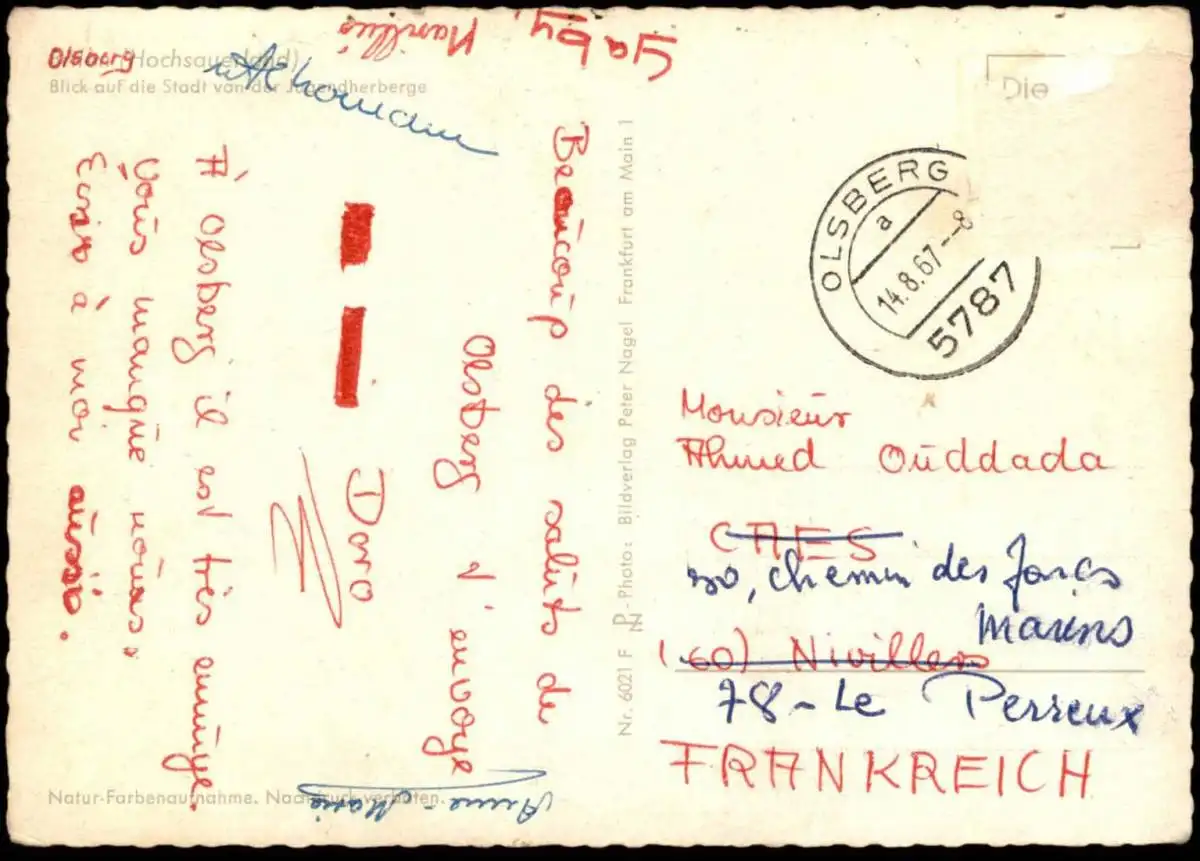 (Hochsauerland)
Olsberg
Blick auf die Stadt von der Jugendherberge
Gaby,
Beaucoup des saluts de
Olsberg d'envoye
Doro
À Olsberg il est très ennuye.
"Vous manque nous"
Ecris à moi aussi.
Anne-Marie
Natur-Farbenaufnahme. Nachdruck verboten.
Nr. 6021 F PN-Photo: Bildverlag Peter Nagel Frankfurt am Main 1
Die
OLSBERG
a
14.8.67--8
5787
Monsieur
Ahmed Ouddada
CAES
20, chemin des Joncs
Marins
(60) Nivillers
78-Le Perreux
FRANKREICH